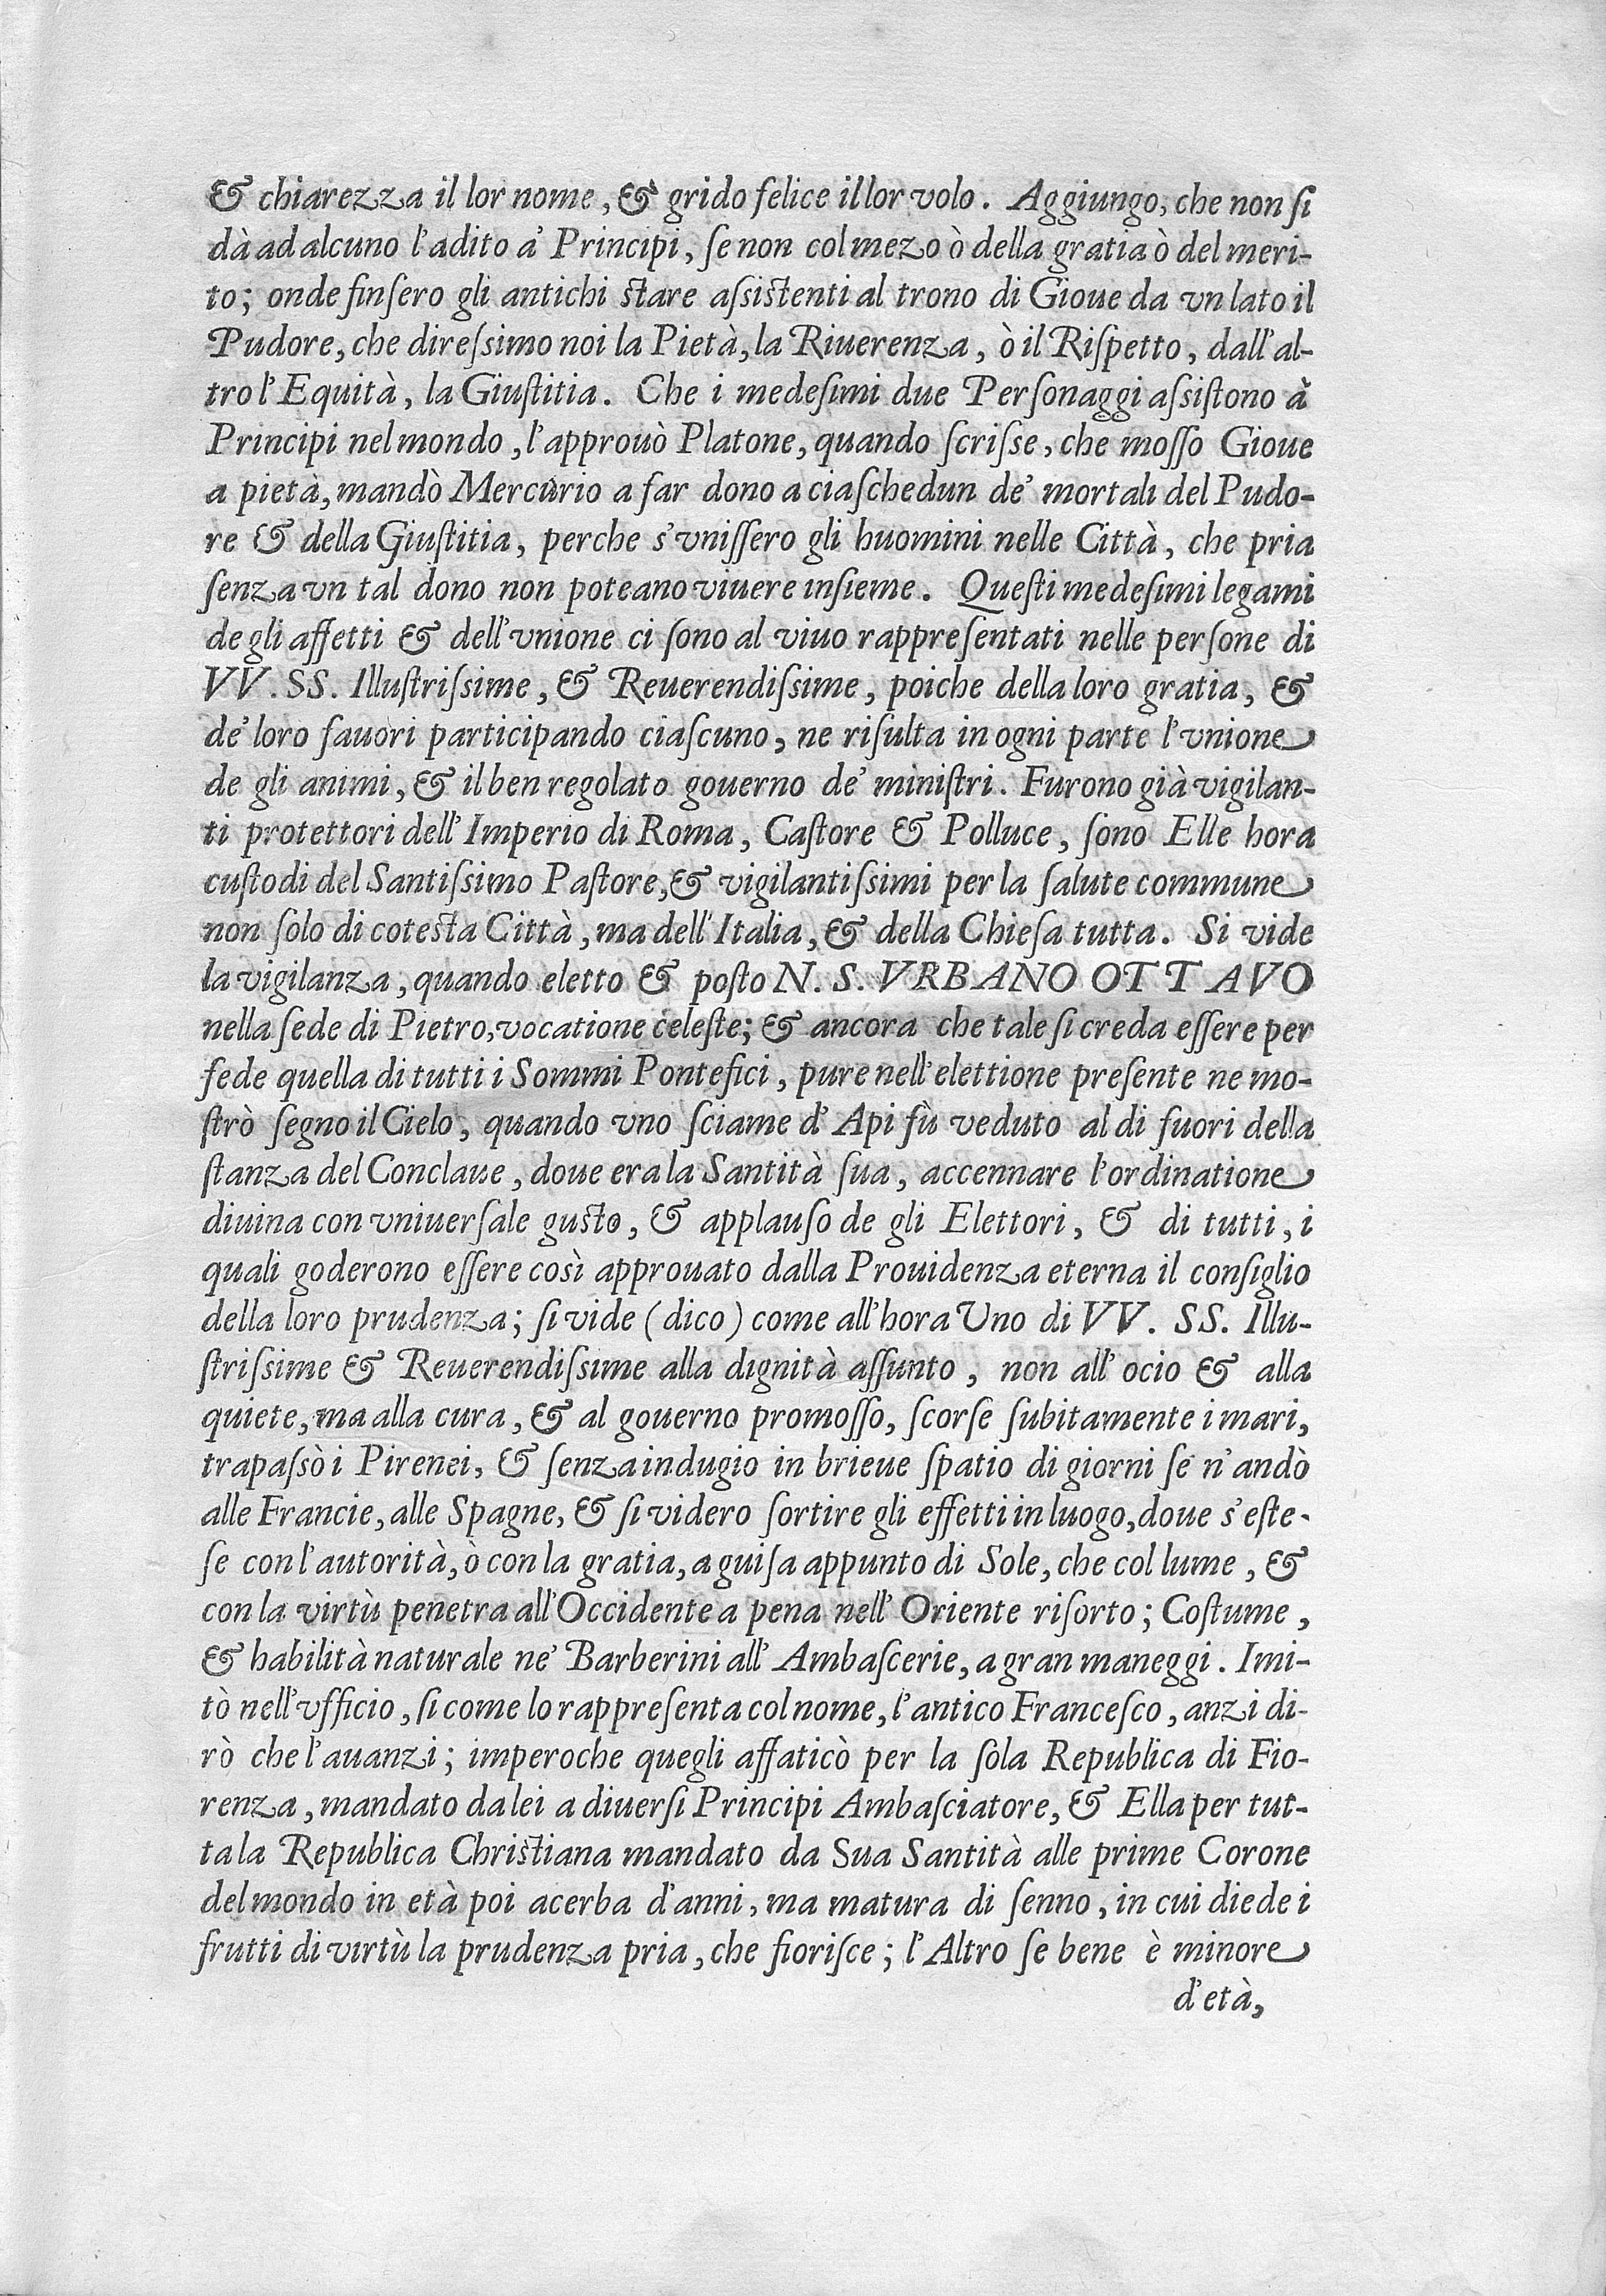 & chiarezza il lor nome, & grido felice il lor volo. Aggiungo, che non ſi
dà ad alcuno l'adito a' Principi, ſe non col mezo ò della gratia ò del meri-
to; onde finſero gli antichi ſtare aſsiſtenti al trono di Gioue da vn lato il
Pudore, che direſsimo noi la Pietà, la Riuerenza, ò il Riſpetto, dall'al-
tro l'Equità, la Giuſtitia. Che i medeſimi due Perſonaggi aſsiſtono à
Principi nel mondo, l'approuò Platone, quando ſcriſse, che moſſo Gioue
a pietà, mandò Mercurio a far dono a ciaſchedun de' mortali del Pudo-
re & della Giuſtitia, perche s'vniſſero gli huomini nelle Città, che pria
ſenza vn tal dono non poteano viuere inſieme. Queſti medeſimi legami
de gli affetti & dell'vnione ci ſono al viuo rappreſentati nelle perſone di
VV. SS. Illuſtriſsime, & Reuerendiſsime, poiche della loro gratia, &
de' loro fauori participando ciaſcuno, ne riſulta in ogni parte l'vnione
de gli animi, & il ben regolato gouerno de' miniſtri. Furono già vigilan-
ti protettori dell'Imperio di Roma, Caſtore & Polluce, ſono Elle hora
cuſtodi del Santiſsimo Paſtore, & vigilantiſsimi per la ſalute commune
non ſolo di coteſta Città, ma dell'Italia, & della Chieſa tutta. Si vide
la vigilanza, quando eletto & poſto N. S. VRBANO OTTAVO
nella ſede di Pietro, vocatione celeſte; & ancora che tale ſi creda eſſere per
fede quella di tutti i Sommi Pontefici, pure nell'elettione preſente ne mo-
ſtrò ſegno il Cielo, quando vno ſciame d'Api fù veduto al di fuori della
ſtanza del Conclaue, doue era la Santità ſua, accennare l'ordinatione
diuina con vniuerſale guſto, & applauſo de gli Elettori, & di tutti, i
quali goderono eſſere così approuato dalla Prouidenza eterna il conſiglio
della loro prudenza; ſi vide (dico) come all'hora Uno di VV. SS. Illu-
ſtriſsime & Reuerendiſsime alla dignità aſſunto, non all'ocio & alla
quiete, ma alla cura, & al gouerno promoſſo, ſcorſe ſubitamente i mari,
trapaſsò i Pirenei, & ſenza indugio in brieue ſpatio di giorni ſe n'andò
alle Francie, alle Spagne, & ſi videro ſortire gli effetti in luogo, doue s'eſte-
ſe con l'autorità, ò con la gratia, a guiſa appunto di Sole, che col lume, &
con la virtù penetra all'Occidente a pena nell'Oriente riſorto; Coſtume,
& habilità naturale ne' Barberini all'Ambaſcerie, a gran maneggi. Imi-
tò nell'vfficio, ſi come lo rappreſenta col nome, l'antico Franceſco, anzi di-
rò che l'auanzi; imperoche quegli affaticò per la ſola Republica di Fio-
renza, mandato da lei a diuerſi Principi Ambaſciatore, & Ella per tut-
ta la Republica Chriſtiana mandato da Sua Santità alle prime Corone
del mondo in età poi acerba d'anni, ma matura di ſenno, in cui diede i
frutti di virtù la prudenza pria, che fioriſce; l'Altro ſe bene è minore
d'età,